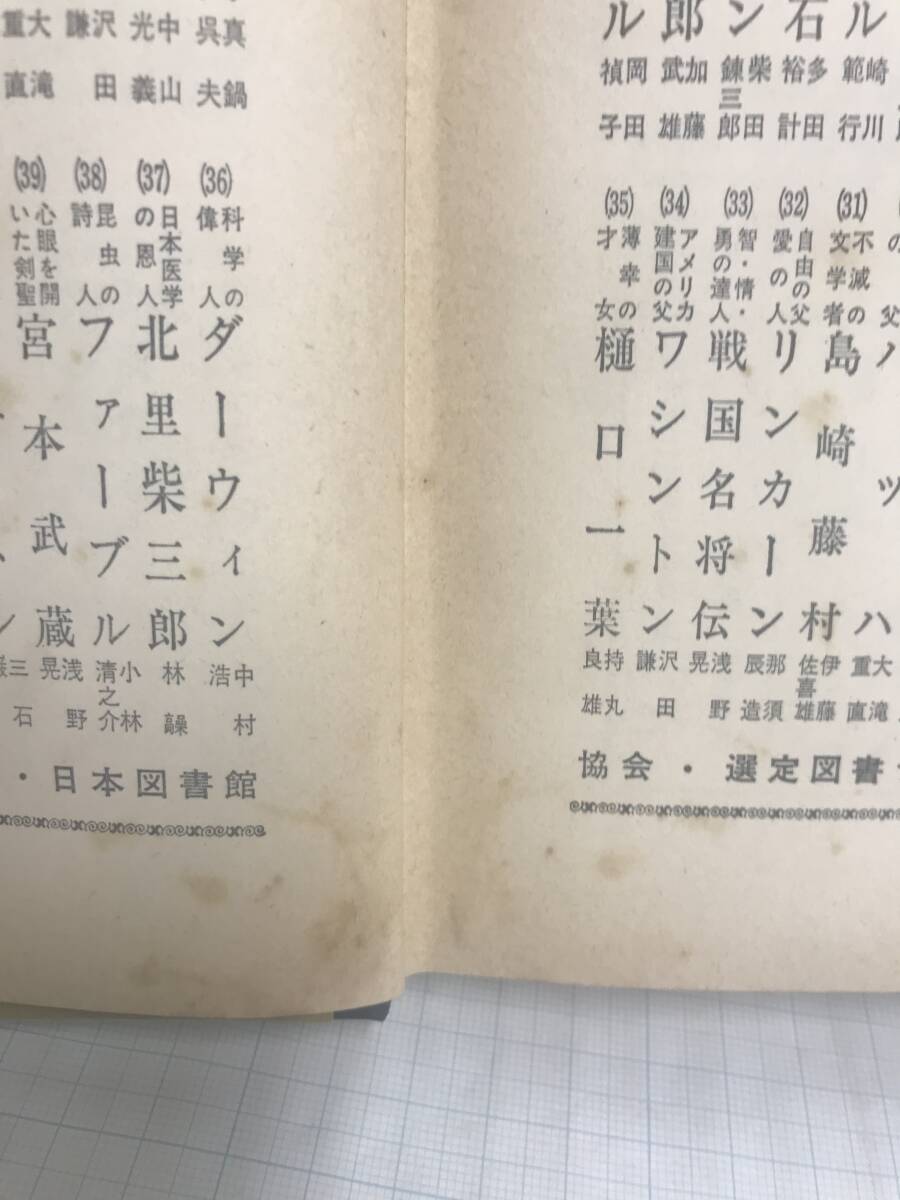 ル
範
崎川
行
石
裕計
多田
ン
錬三郎
柴田
郎
武雄
加藤
ル
禎子
岡田
呉夫
真鍋
光義
中山
謙
沢田
重直
大滝
の
父
ハッハ
大滝
重直
(31)
不滅の
文学者
島崎藤村
伊藤
佐喜雄
(32)
自由の父
愛の人
リンカーン
那須
辰造
(33)
智・情・
勇の達人
戦国名将伝
浅野
晃
(34)
アメリカ
建国の父
ワシントン
沢田
謙
(35)
薄幸の
才女
樋口一葉
持丸
良雄
(36)
科学の
偉人
ダーウィン
中村
浩
(37)
日本医学
の恩人
北里柴三郎
林
髞
(38)
昆虫の
詩人
ファーブル
小林
清之介
(39)
心眼を開
いた剣聖
宮本武蔵
浅野
晃
三石
巌
協会・選定図書
・日本図書館